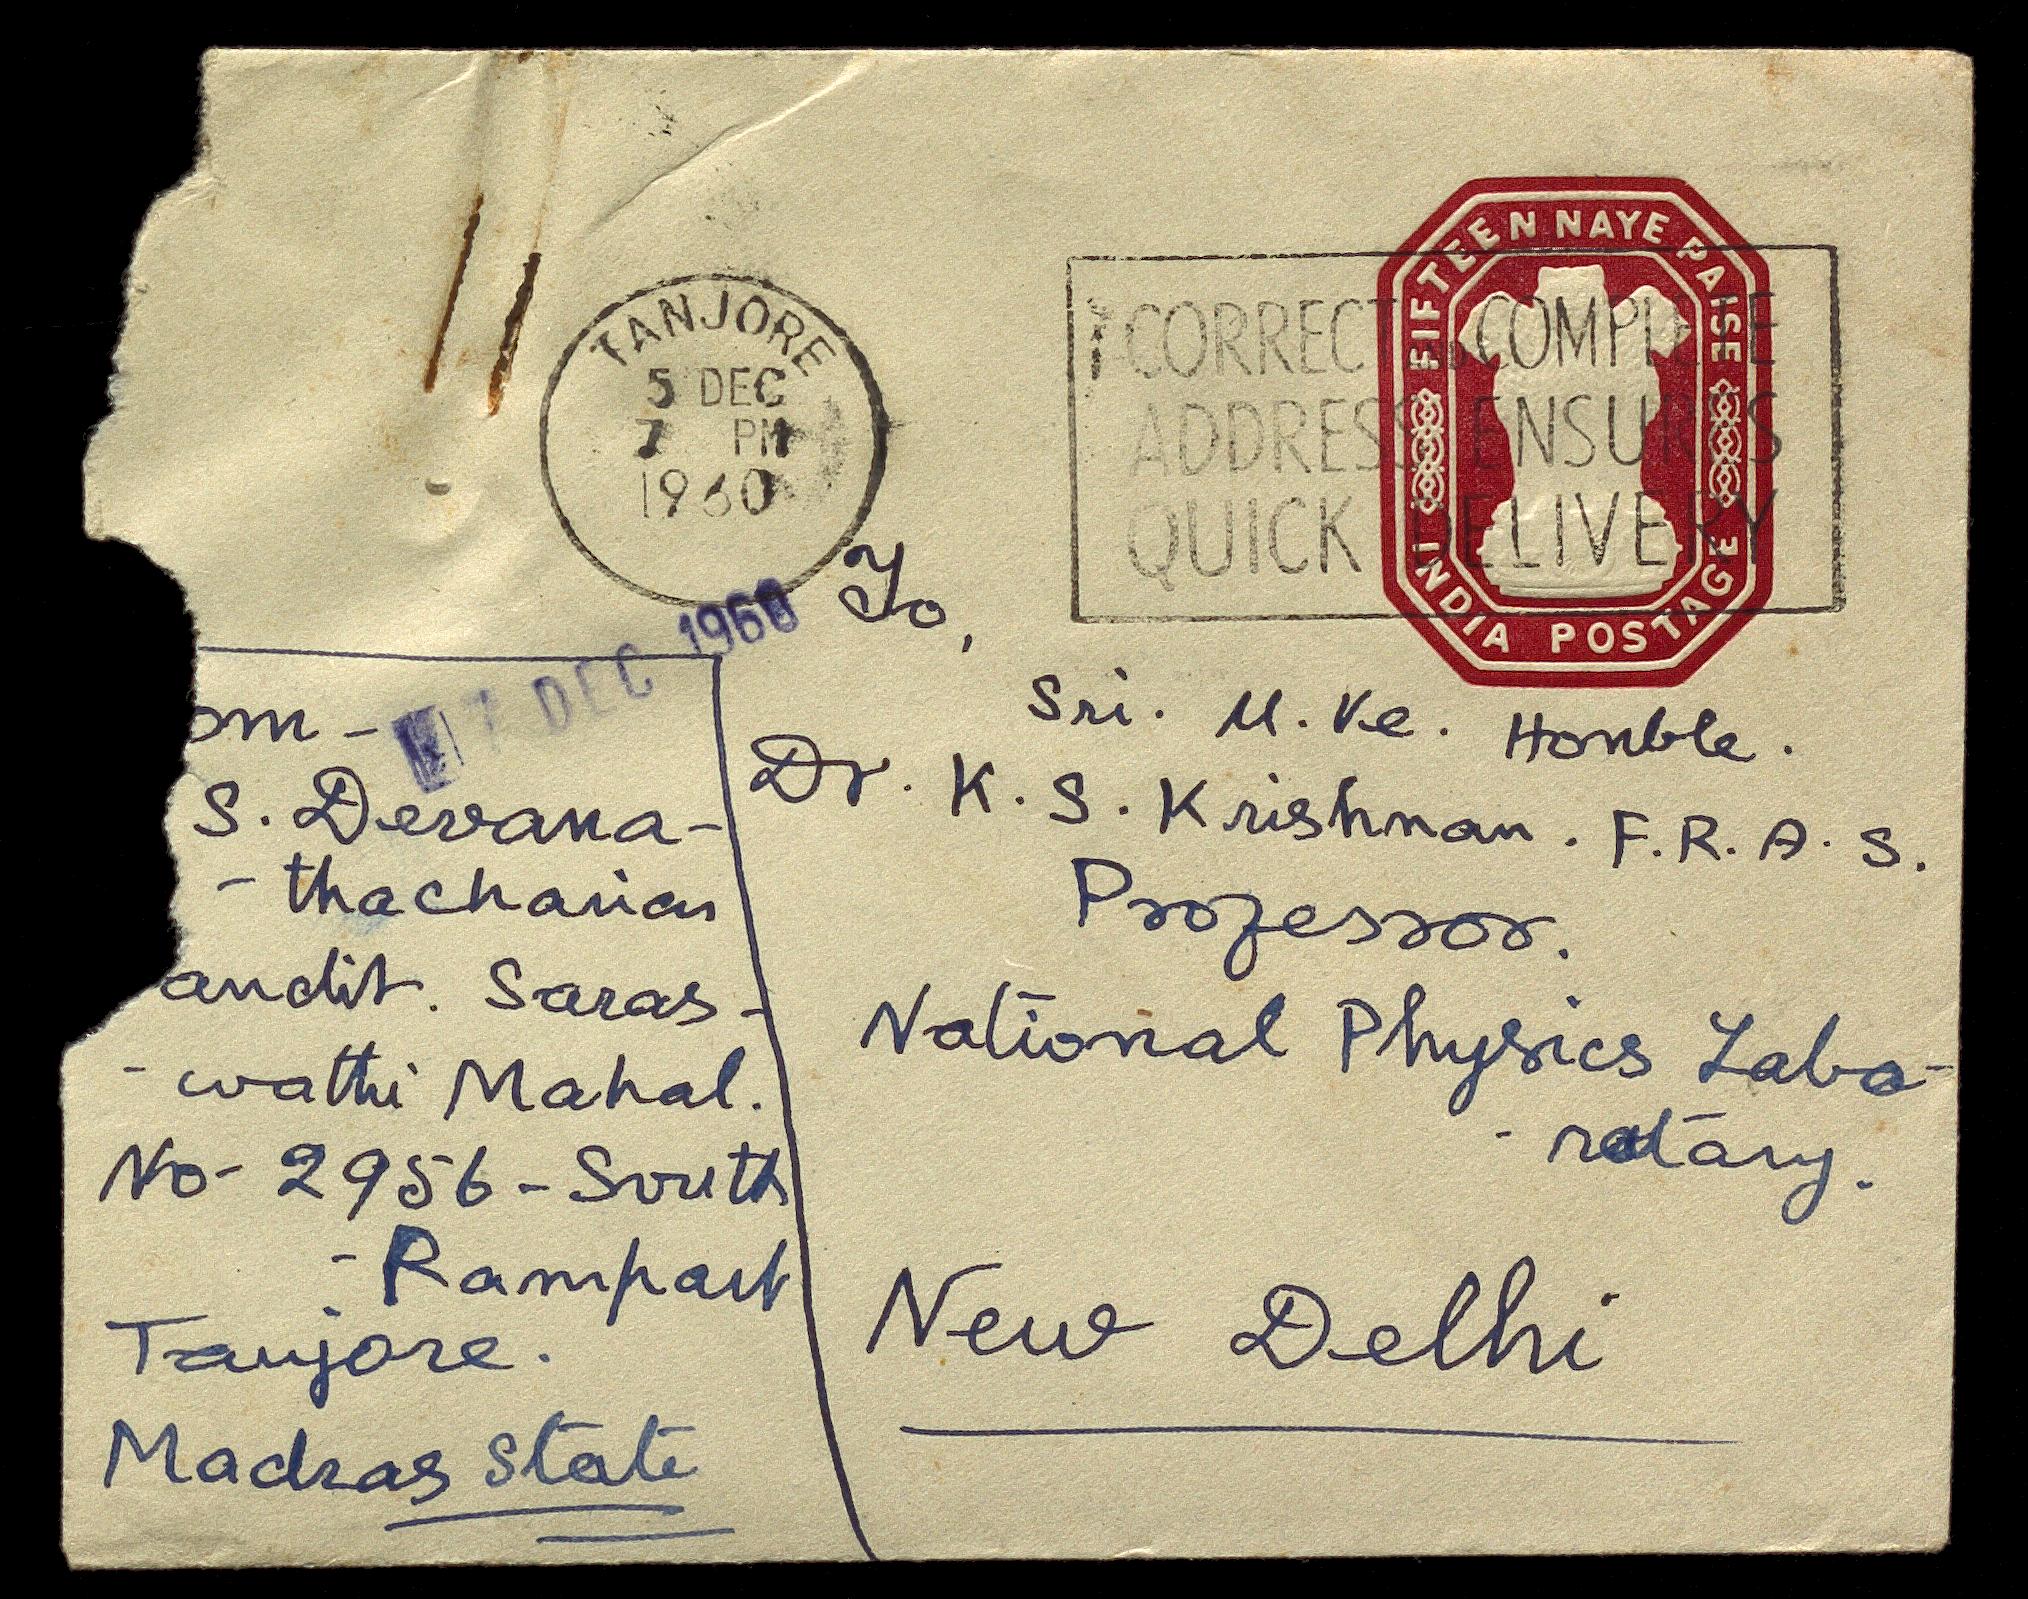 FIFTEEN NAYE PAISE
INDIA POSTAGE
TANJORE
5 DEC
7 PM
1960
CORRECT AND COMPLETE
ADDRESS ENSURES
QUICK DELIVERY
7 DEC 1960
To,
Sri. U. Ve. Honble.
Dr. K. S. Krishnan. F. R. A. S.
Professor.
National Physics Labo-
- ratary.
New Delhi
om -
S. Devana-
- thachariar
andit. Saras-
- wathi Mahal.
No - 2956 - South
- Rampart
Tanjore.
Madras State